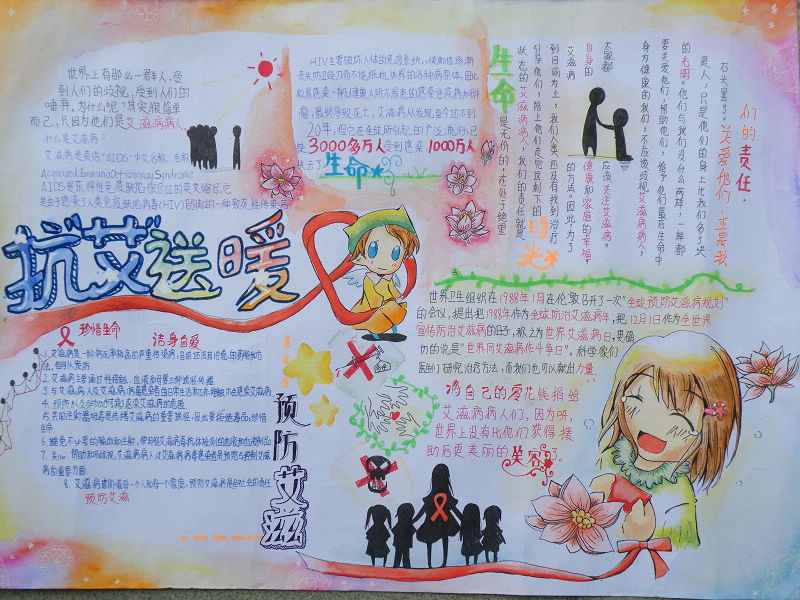 世界上有那么一群人,受
到人们的歧视,受到人们的
唾弃。为什么呢?其实很简单
而已,只因为他们是艾滋病病人。
什么是艾滋病?
艾滋病是英语"AIDS"中文名称,全称
Acquired Immuno Deficiency Syndrome
AIDS是获得性免疫缺陷综合征的英文缩写,它
是由于感染了人类免疫缺陷病毒(HIV)所引起的一种致死性传染病
HIV主要破坏人体的免疫系统,使机体逐渐
丧失防卫能力而不能抵抗外界的各种病原体,因此
极易感染一般健康人所不易患的感染性疾病和肿
瘤,最终导致死亡。艾滋病从发现至今还不到
20年,但它在全球所引起的广泛流行已
使3000多万人受到感染,1000万人
失去了
生命
们的责任.
石头罢了。关爱他们,正是我
是人,只是他们的身上比我们多了块
的光明。他们与我们没什么两样,一样都
要关爱他们,帮助他们,给予他们最后生命中
身为健康的我们,不应该歧视艾滋病病人,
大家都
应该关注艾滋病。
自身的
健康和家庭的幸福,
艾滋病
的方法,因此,为了
到目前为止,我们人类还没有找到治疗
引导他们,陪上他们走完这剩下的
状态的艾滋病病人,我们的责任就是
生命
是无价的,在处于绝望
抗"艾"送暖
珍惜生命 洁身自爱
1.艾滋病是一种病死率极高的严重传染病,目前还没有治愈的药物和方
法,但可以预防。
2.艾滋病主要通过性接触,血液和母婴三种途径传播
3.与艾滋病人及艾滋病病毒感染者的日常生活和工作接触不会感染艾滋病
5.共用注射器吸毒是传播艾滋病的重要途径,因此要拒绝毒品,珍惜
生命
6.避免不必要的输血和注射,使用经艾滋病毒抗体检测的血液和血液制品
7.关心、帮助和不歧视艾滋病病人及艾滋病病毒感染者是预防与控制艾滋
病的重要方面
8.艾滋病威胁着每一个人和每一个家庭,预防艾滋病是全社会的责任
预防艾滋
预防艾滋
世界卫生组织在1988年1月在伦敦召开了一次"全球预防艾滋病规划"
的会议,提出把1988年作为全球防治艾滋病年,把12月1日作为全世界
宣传防治艾滋病的日子,称之为世界艾滋病日,更确
切的说是"世界同艾滋病作斗争日"。科学家们
医生们研究治疗方法,而我们也可以献出力量
将自己的零花钱捐给
艾滋病病人们,因为呀,
世界上没有比他们获得援
助后更美丽的笑容了。